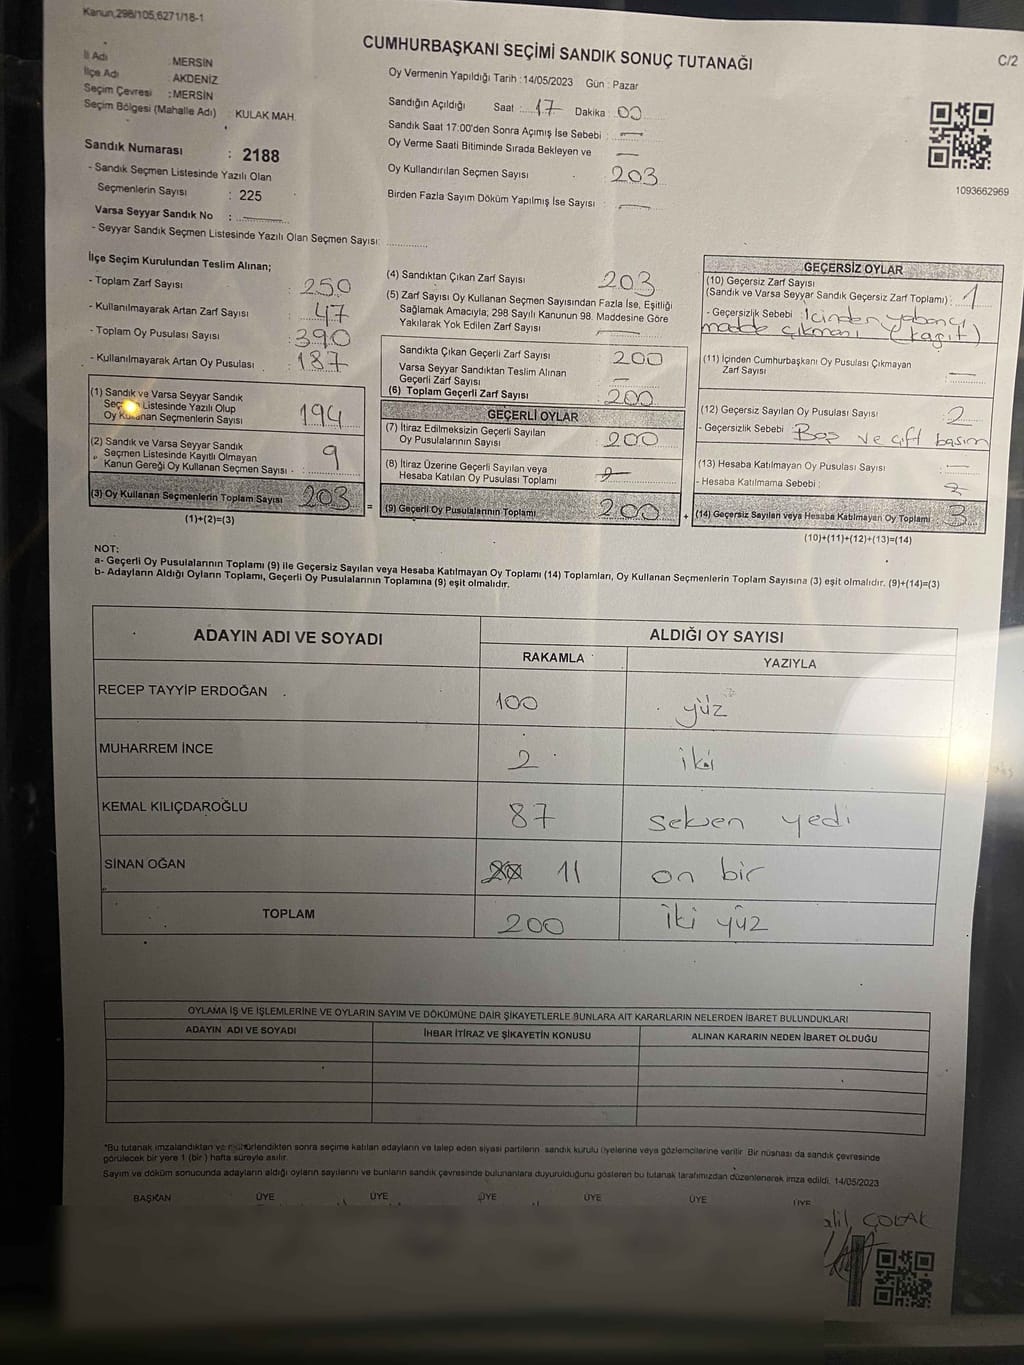 Kanun,298/105,6271/18-1
CUMHURBAŞKANI SEÇİMİ SANDIK SONUÇ TUTANAĞI
C/2
İl Adı : MERSİN
İlçe Adı : AKDENİZ
Seçim Çevresi : MERSİN
Seçim Bölgesi (Mahalle Adı) : KULAK MAH.
Oy Vermenin Yapıldığı Tarih :14/05/2023 Gün : Pazar
Sandığın Açıldığı Saat : 17 Dakika : 00
Sandık Saat 17:00'den Sonra Açımış İse Sebebi : —
Oy Verme Saati Bitiminde Sırada Bekleyen ve —
Oy Kullandırılan Seçmen Sayısı 203
Birden Fazla Sayım Döküm Yapılmış İse Sayısı : —
1093662969
Sandık Numarası : 2188
- Sandık Seçmen Listesinde Yazılı Olan
Seçmenlerin Sayısı : 225
Varsa Seyyar Sandık No : —
- Seyyar Sandık Seçmen Listesinde Yazılı Olan Seçmen Sayısı:
İlçe Seçim Kurulundan Teslim Alınan;
- Toplam Zarf Sayısı : 250
- Kullanılmayarak Artan Zarf Sayısı : 47
- Toplam Oy Pusulası Sayısı : 390
- Kullanılmayarak Artan Oy Pusulası : 187
(1) Sandık ve Varsa Seyyar Sandık
Seçmen Listesinde Yazılı Olup
Oy Kullanan Seçmenlerin Sayısı 194
(2) Sandık ve Varsa Seyyar Sandık
Seçmen Listesinde Kayıtlı Olmayan
Kanun Gereği Oy Kullanan Seçmen Sayısı 9
(3) Oy Kullanan Seçmenlerin Toplam Sayısı 203
(1)+(2)=(3)
(4) Sandıktan Çıkan Zarf Sayısı 203
(5) Zarf Sayısı Oy Kullanan Seçmen Sayısından Fazla İse, Eşitliği
Sağlamak Amacıyla; 298 Sayılı Kanunun 98. Maddesine Göre
Yakılarak Yok Edilen Zarf Sayısı —
Sandıkta Çıkan Geçerli Zarf Sayısı 200
Varsa Seyyar Sandıktan Teslim Alınan
Geçerli Zarf Sayısı —
(6) Toplam Geçerli Zarf Sayısı 200
=
GEÇERLİ OYLAR
(7) İtiraz Edilmeksizin Geçerli Sayılan
Oy Pusulalarının Sayısı 200
(8) İtiraz Üzerine Geçerli Sayılan veya
Hesaba Katılan Oy Pusulası Toplamı
(9) Geçerli Oy Pusulalarının Toplamı 200
+
GEÇERSİZ OYLAR
(10) Geçersiz Zarf Sayısı
(Sandık ve Varsa Seyyar Sandık Geçersiz Zarf Toplamı) : 1
- Geçersizlik Sebebi : İçinden yabancı
madde çıkması (kağıt)
(11) İçinden Cumhurbaşkanı Oy Pusulası Çıkmayan
Zarf Sayısı —
(12) Geçersiz Sayılan Oy Pusulası Sayısı 2
- Geçersizlik Sebebi : Boş ve çift basım
(13) Hesaba Katılmayan Oy Pusulası Sayısı —
- Hesaba Katılmama Sebebi :
(14) Geçersiz Sayılan veya Hesaba Katılmayan Oy Toplamı : 3
(10)+(11)+(12)+(13)=(14)
NOT:
a- Geçerli Oy Pusulalarının Toplamı (9) ile Geçersiz Sayılan veya Hesaba Katılmayan Oy Toplamı (14) Toplamları, Oy Kullanan Seçmenlerin Toplam Sayısına (3) eşit olmalıdır. (9)+(14)=(3)
b- Adayların Aldığı Oyların Toplamı, Geçerli Oy Pusulalarının Toplamına (9) eşit olmalıdır.
ADAYIN ADI VE SOYADI
ALDIĞI OY SAYISI
RAKAMLA
YAZIYLA
RECEP TAYYİP ERDOĞAN 100 yüz
MUHARREM İNCE 2 iki
KEMAL KILIÇDAROĞLU 87 seksen yedi
SİNAN OĞAN 11 on bir
TOPLAM 200 iki yüz
OYLAMA İŞ VE İŞLEMLERİNE VE OYLARIN SAYIM VE DÖKÜMÜNE DAİR ŞİKAYETLERLE BUNLARA AİT KARARLARIN NELERDEN İBARET BULUNDUKLARI
ADAYIN ADI VE SOYADI
İHBAR İTİRAZ VE ŞİKAYETİN KONUSU
ALINAN KARARIN NEDEN İBARET OLDUĞU
*Bu tutanak imzalandıktan ve mühürlendikten sonra seçime katılan adayların ve talep eden siyasi partilerin sandık kurulu üyelerine veya gözlemcilerine verilir. Bir nüshası da sandık çevresinde
görülecek bir yere 1 (bir ) hafta süreyle asılır.
Sayım ve döküm sonucunda adayların aldığı oyların sayılarını ve bunların sandık çevresinde bulunanlara duyurulduğunu gösteren bu tutanak tarafımızdan düzenlenerek imza edildi. 14/05/2023
BAŞKAN ÜYE ÜYE ÜYE ÜYE ÜYE ÜYE
ÇOLAK